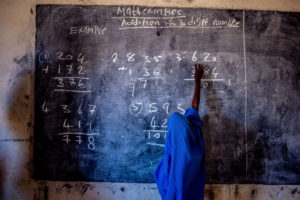 Mathematics
Addition
3 digit number
EXAMPLE
(1) 204
+ 172
376
2 835
+ 136
971
3 620
4 367
+ 411
778
(5) 595